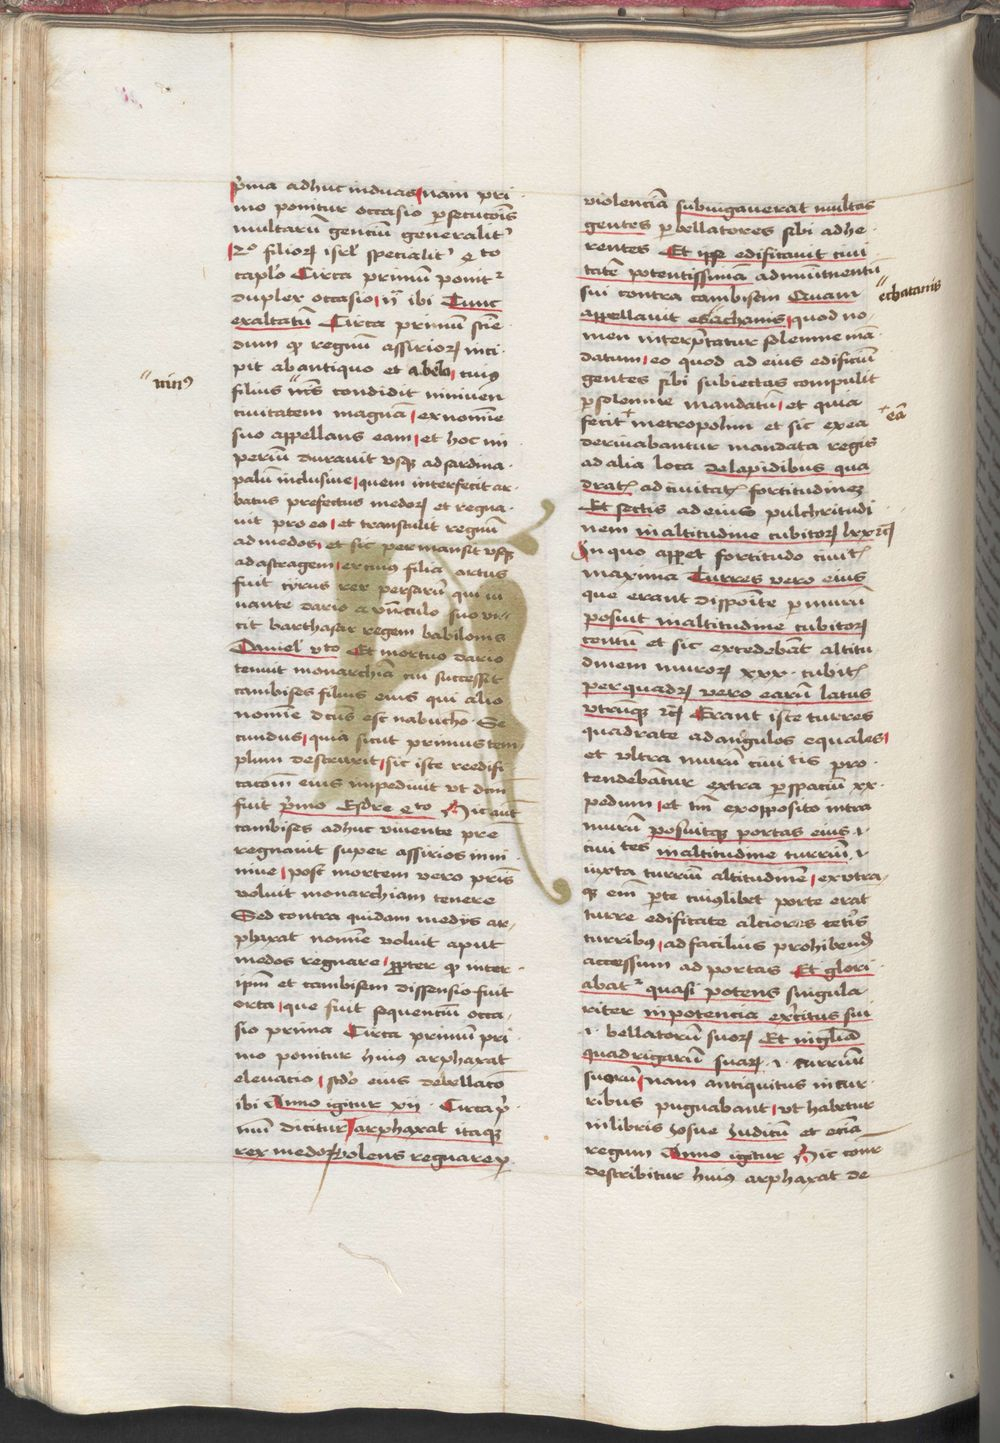 p̄ma adhuc in duas nam pri
mo ponitur occasio p̄secucōis
multarū genciū generalitˀ
2º filioꝝ isrl̄ specialitˀ 4 to
caplo Circa primum ponitˀ
duplex occasio n̄ ibi Tunc
exaltatū Circa primum scīe
dum qđ regnū assirioꝝ inci
pit ab antiquo et a belo cuiꝰ
filius nīs condidit niniuen
ciuitatem magnā ex nomīe
suo appellans eam et hoc im
periū durauit vsqꝫ ad sardina
palū inclusiue quem interfecit ar
batus prefectus medoꝝ et regna
uit pro eo et transtulit regnū
ad medos et sic permansit vsqꝫ
ad astragem ex cuius filia ortus
fuit cyrus rex persarū qui iu
uante dario a vūculo suo vi
cit barthasar regem babilonis
Daniel vto Et mortuo dario
tenuit monarchiā cui successit
cambises filius eius qui alio
nomīe dcūs est nabucho Se
cundus quia sicut primus tem
plum destruxit sic iste reedifi
cacoīn eius impediuit vt dcm̄
fuit p̄mo Esdre 4 to Hic aut̄
cambises adhuc viuente pre
regnauit super assirios in ni
niue post mortem vero pris̄
voluit monarchiam tenere
Sed contra quidam medꝰ ar
phaxat nomīe voluit aput
medos regnare ꝓpter qđ inter
ip̄m et cambisem dissensio fuit
orta que fuit sequenciū occa
sio prima Circa primum pri
mo ponitur huiꝰ arphaxat
eleuacio scd̄o eius debellacō
ibi Anno igitur xij Circa p̄
mū dicitur arphaxat itaqꝫ
rex medoꝝ volens regnare ꝑ
ninꝰ
violenciā subiugauerat multas
gentes ꝑ bellatores sibi adhe
rentes Et ipse edificauit ciui
tatē potentissimā ad munimentū
sui contra cambisem Quam
appellauit esachanis quod no
men interp̄tatur solemne man
datum eo quod ad eius edificiū
gentes sibi subiectas compulit
ꝑ solemne mandatū et quia
fecit metropolim et sic ex ea
deriuabantur mandata regis
ad alia loca de lapidibus qua
drat ad ciuitat fortitudinez
Et sectis ad eius pulchritudi
nem in altitudine cubitoꝝ lxx
In quo apꝑet fortitudo ciuit
maxima Turres vero eius
que erant disposite ꝑ murū
posuit in altitudine cubitoꝝ
centū et sic excedebāt altitu
dinem muroꝝ xxx cubit
per quadꝝ vero earū latus
vtrūqꝫ Erant iste turres
quadrate ad angulos equales
et vltra murū ciui tis pro
tendebantur extra ꝑ spaciū xx
pedum et tm̄ ex opposito intra
murū posuitqꝫ portas eius i
ciui tes in altitudine turriū i
iuxta turriū altitudinē ex vtra
qꝫ eī pte cuiuslibet porte erat
turre edificate alciores cetis
turribꝰ ad facilius prohibend
accessum ad portas Et glori
abatˀ quasi potens singula
riter in potencia exc̄itus sui
i bellatorū suoꝝ Et in gloria
quadrigarū suaꝝ i curruū
suorū nam antiquitus in cur
ribus pugnabant vt habetur
in libris Josue Judicū et eciā
regum Anno igitur Hic conr
describitur huiꝰ arphaxat de
echatanis
eā